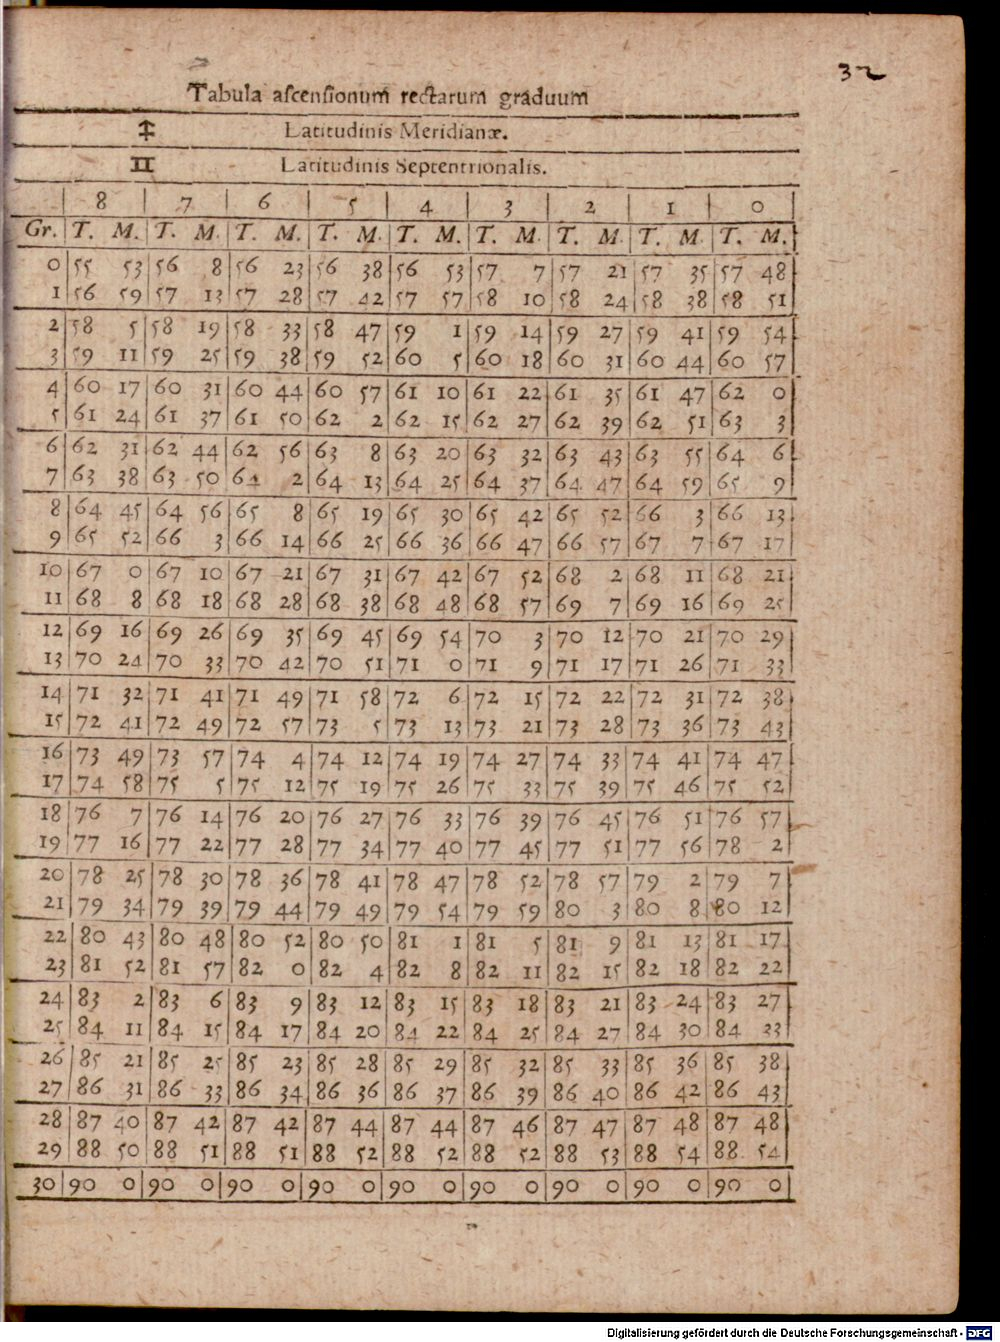 32
Tabula ascensionum rectarum graduum
♐ Latitudinis Meridianæ.
♊ Latitudinis Septentrionalis.
8 7 6 5 4 3 2 1 0
Gr. T. M. T. M. T. M. T. M. T. M. T. M. T. M. T. M. T. M.
0 55 53 56 8 56 23 56 38 56 53 57 7 57 21 57 35 57 48
1 56 59 57 13 57 28 57 42 57 57 58 10 58 24 58 38 58 51
2 58 5 58 19 58 33 58 47 59 1 59 14 59 27 59 41 59 54
3 59 11 59 25 59 38 59 52 60 5 60 18 60 31 60 44 60 57
4 60 17 60 31 60 44 60 57 61 10 61 22 61 35 61 47 62 0
5 61 24 61 37 61 50 62 2 62 15 62 27 62 39 62 51 63 3
6 62 31 62 44 62 56 63 8 63 20 63 32 63 43 63 55 64 6
7 63 38 63 50 64 2 64 13 64 25 64 37 64 47 64 59 65 9
8 64 45 64 56 65 8 65 19 65 30 65 42 65 52 66 3 66 13
9 65 52 66 3 66 14 66 25 66 36 66 47 66 57 67 7 67 17
10 67 0 67 10 67 21 67 31 67 42 67 52 68 2 68 11 68 21
11 68 8 68 18 68 28 68 38 68 48 68 57 69 7 69 16 69 25
12 69 16 69 26 69 35 69 45 69 54 70 3 70 12 70 21 70 29
13 70 24 70 33 70 42 70 51 71 0 71 9 71 17 71 26 71 33
14 71 32 71 41 71 49 71 58 72 6 72 15 72 22 72 31 72 38
15 72 41 72 49 72 57 73 5 73 13 73 21 73 28 73 36 73 43
16 73 49 73 57 74 4 74 12 74 19 74 27 74 33 74 41 74 47
17 74 58 75 5 75 12 75 19 75 26 75 33 75 39 75 46 75 52
18 76 7 76 14 76 20 76 27 76 33 76 39 76 45 76 51 76 57
19 77 16 77 22 77 28 77 34 77 40 77 45 77 51 77 56 78 2
20 78 25 78 30 78 36 78 41 78 47 78 52 78 57 79 2 79 7
21 79 34 79 39 79 44 79 49 79 54 79 59 80 3 80 8 80 12
22 80 43 80 48 80 52 80 50 81 1 81 5 81 9 81 13 81 17
23 81 52 81 57 82 0 82 4 82 8 82 11 82 15 82 18 82 22
24 83 2 83 6 83 9 83 12 83 15 83 18 83 21 83 24 83 27
25 84 11 84 15 84 17 84 20 84 22 84 25 84 27 84 30 84 33
26 85 21 85 25 85 23 85 28 85 29 85 32 85 33 85 36 85 38
27 86 31 86 33 86 34 86 36 86 37 86 39 86 40 86 42 86 43
28 87 40 87 42 87 42 87 44 87 44 87 46 87 47 87 48 87 48
29 88 50 88 51 88 51 88 52 88 52 88 52 88 53 88 54 88 54
30 90 0 90 0 90 0 90 0 90 0 90 0 90 0 90 0 90 0
Digitalisierung gefördert durch die Deutsche Forschungsgemeinschaft - DFG